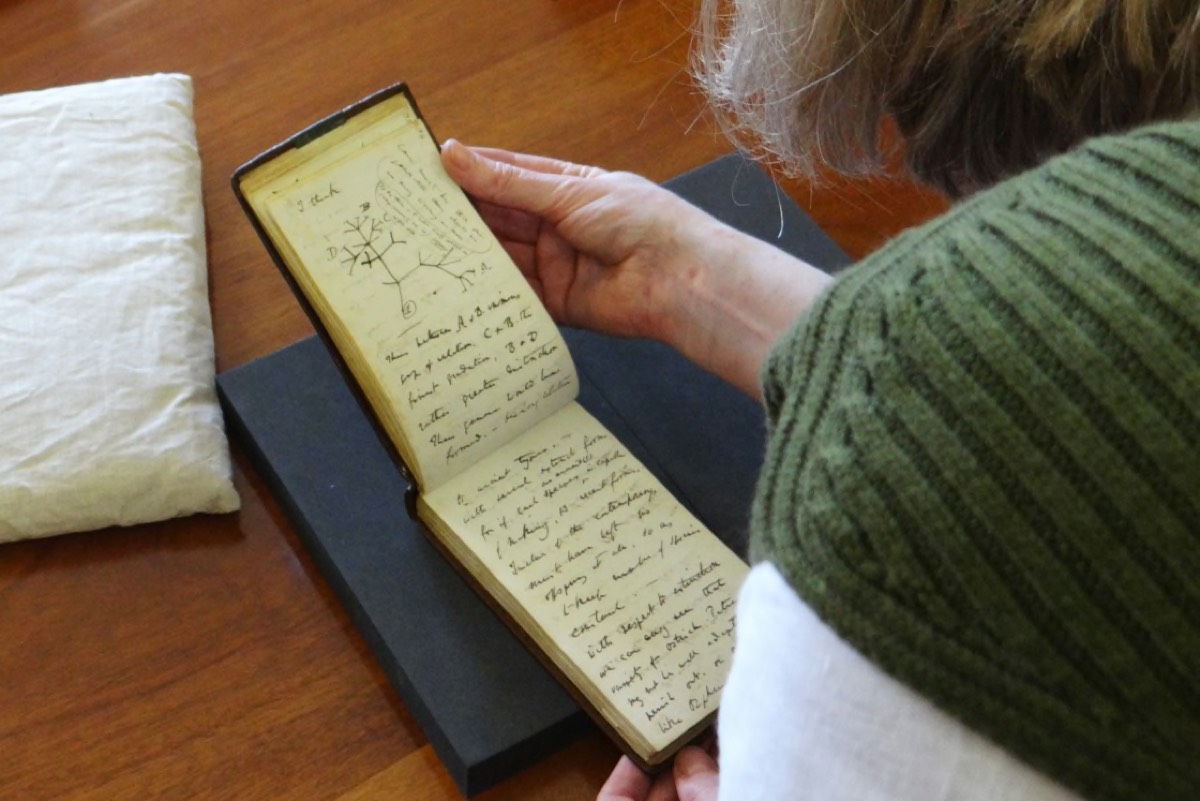 I think
B
C
D
A
1
Thus between A & B. immense
gap of relation. C & B. the
finest gradation, B & D
rather greater distinction
Thus genera would be
formed. — bearing relation
to ancient types. —
with several extinct forms
for if each species is capable
of making, 13 recent forms,
Twelve of the contemporarys
must have left no
offspring at all, so as
to keep number of species
constant. —
With respect to extinction
we can easy see that
variety of ostrich. Petise
may not be well adapt
perish out, or on
like Orpheus